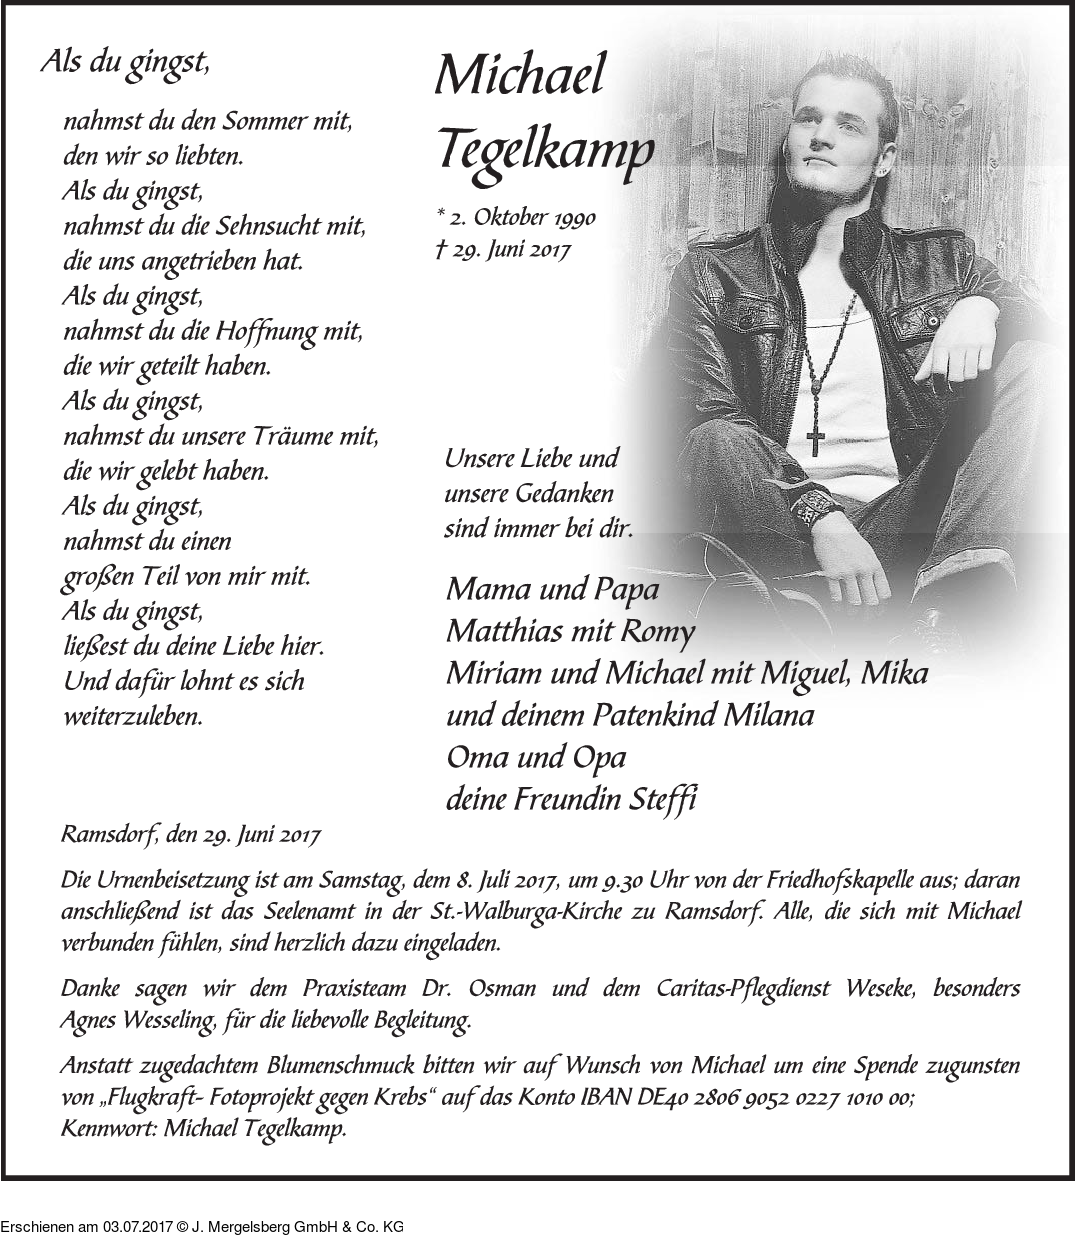 Als du gingst,
nahmst du den Sommer mit,
den wir so liebten.
Als du gingst,
nahmst du die Sehnsucht mit,
die uns angetrieben hat.
Als du gingst,
nahmst du die Hoffnung mit,
die wir geteilt haben.
Als du gingst,
nahmst du unsere Träume mit,
die wir gelebt haben.
Als du gingst,
nahmst du einen
großen Teil von mir mit.
Als du gingst,
ließest du deine Liebe hier.
Und dafür lohnt es sich
weiterzuleben.
Michael
Tegelkamp
* 2. Oktober 1990
† 29. Juni 2017
Unsere Liebe und
unsere Gedanken
sind immer bei dir.
Mama und Papa
Matthias mit Romy
Miriam und Michael mit Miguel, Mika
und deinem Patenkind Milana
Oma und Opa
deine Freundin Steffi
Ramsdorf, den 29. Juni 2017
Die Urnenbeisetzung ist am Samstag, dem 8. Juli 2017, um 9.30 Uhr von der Friedhofskapelle aus; daran
anschließend ist das Seelenamt in der St.-Walburga-Kirche zu Ramsdorf. Alle, die sich mit Michael
verbunden fühlen, sind herzlich dazu eingeladen.
Danke sagen wir dem Praxisteam Dr. Osman und dem Caritas-Pflegdienst Weseke, besonders
Agnes Wesseling, für die liebevolle Begleitung.
Anstatt zugedachtem Blumenschmuck bitten wir auf Wunsch von Michael um eine Spende zugunsten
von „Flugkraft- Fotoprojekt gegen Krebs“ auf das Konto IBAN DE40 2806 9052 0227 1010 00;
Kennwort: Michael Tegelkamp.
Erschienen am 03.07.2017 © J. Mergelsberg GmbH & Co. KG